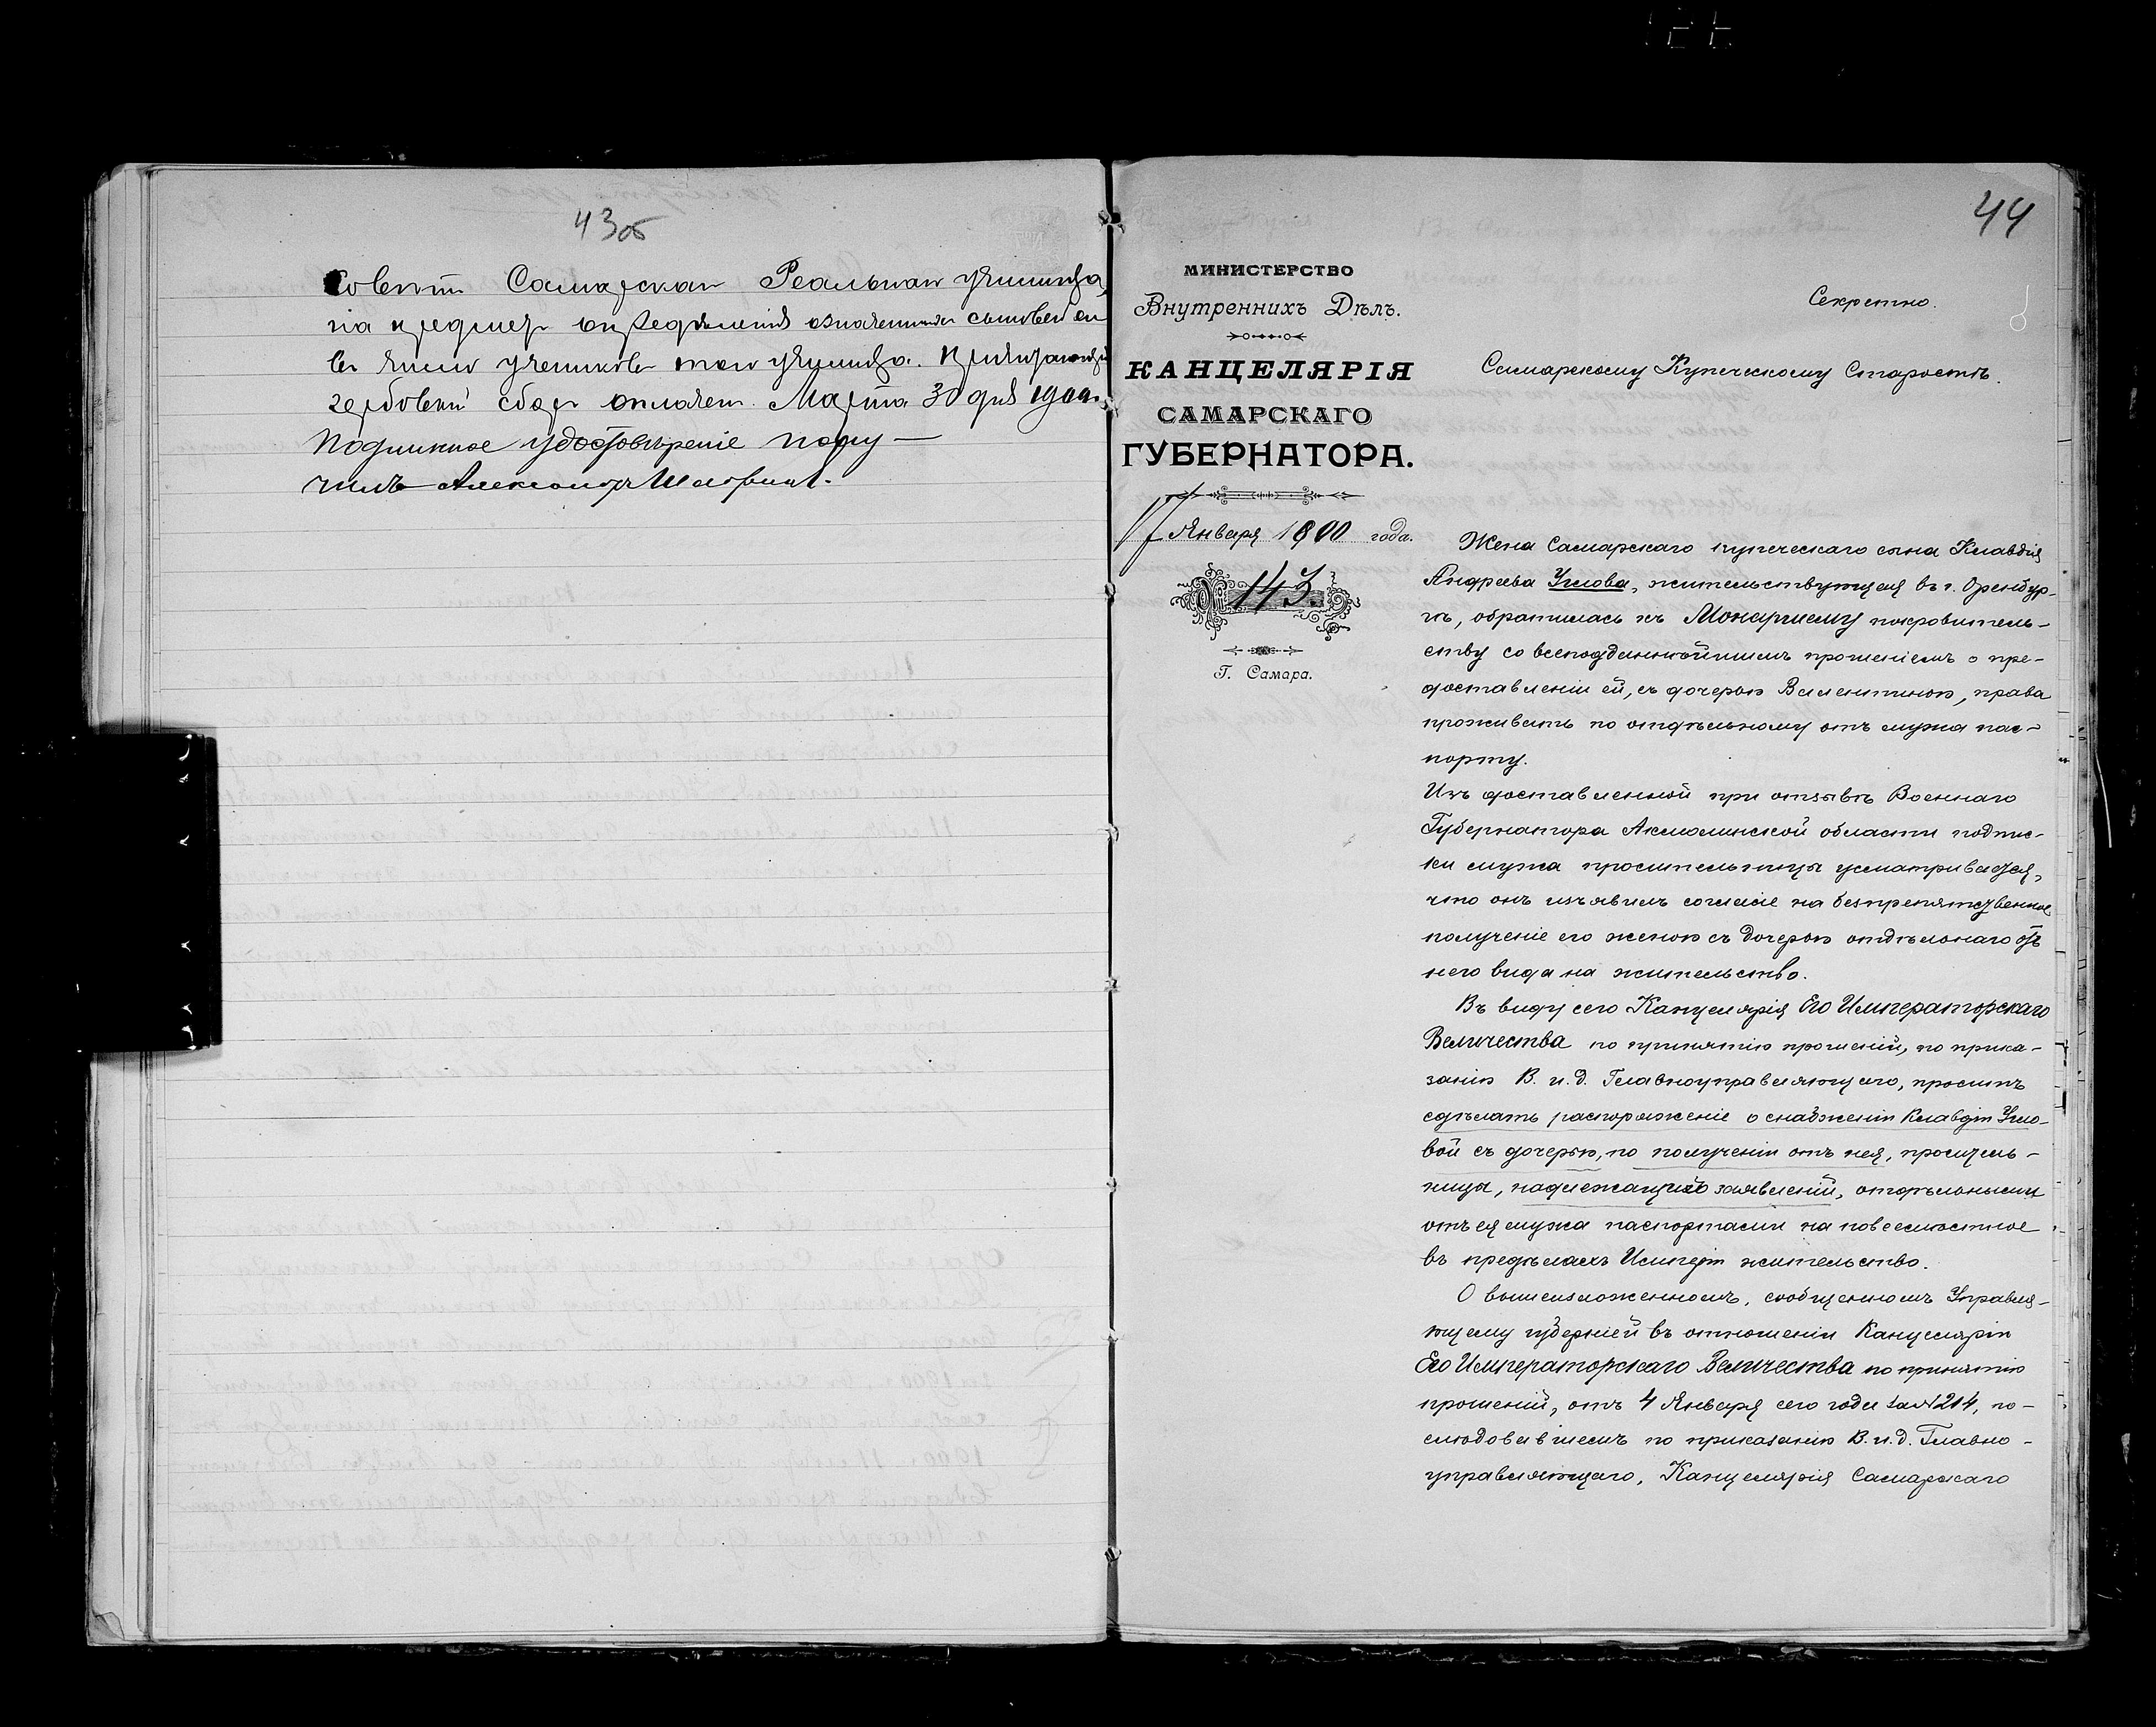 43об
Совѣтъ Самарскаго Реальнаго училища,
на предметъ опредѣленія означенныхъ сыновей его
въ число учениковъ того училища. Причитающійся
гербовый сборъ оплаченъ. Марта 30 дня 1900 г.
Подлинное удостовѣреніе полу-
чилъ Александръ
44
МИНИСТЕРСТВО
Внутреннихъ Дѣлъ.
КАНЦЕЛЯРІЯ
САМАРСКАГО
ГУБЕРНАТОРА.
17 Января 1900 года.
№ 143.
Г. Самара.
Секретно.
Самарскому Купеческому Старостѣ.
Жена Самарскаго купеческаго сына Клавдія
Андреева Углова, жительствующая въ г. Оренбур-
гѣ, обратилась къ Монаршему покровитель-
ству со всеподданнѣйшимъ прошеніемъ о пре-
доставленіи ей, съ дочерью Валентиною, права
проживать по отдѣльному отъ мужа пас-
порту.
Изъ доставленной при отзывѣ Военнаго
Губернатора Акмолинской области подпис-
ки мужа просительницы усматривается,
что онъ изъявилъ согласіе на безпрепятственное
полученіе его женою съ дочерью отдѣльнаго отъ
него вида на жительство.
Въ виду сего Канцелярія Его Императорскаго
Величества по принятію прошеній, по прика-
занію В. и. д. Главноуправляющаго, проситъ
сдѣлать распоряженіе о снабженіи Клавдіи Угло-
вой съ дочерью, по полученіи отъ нея, проситель-
ницы, надлежащихъ заявленій, отдѣльными
отъ ея мужа паспортами на повсемѣстное
въ предѣлахъ Имперіи жительство.
О вышеизложенномъ, сообщенномъ Управля-
ющему губерніей въ отношеніи Канцеляріи
Его Императорскаго Величества по принятію
прошеній, отъ 4 Января сего года за № 214, по-
слѣдовавшемъ по приказанію В. и. д. Главно-
управляющаго, Канцелярія Самарскаго